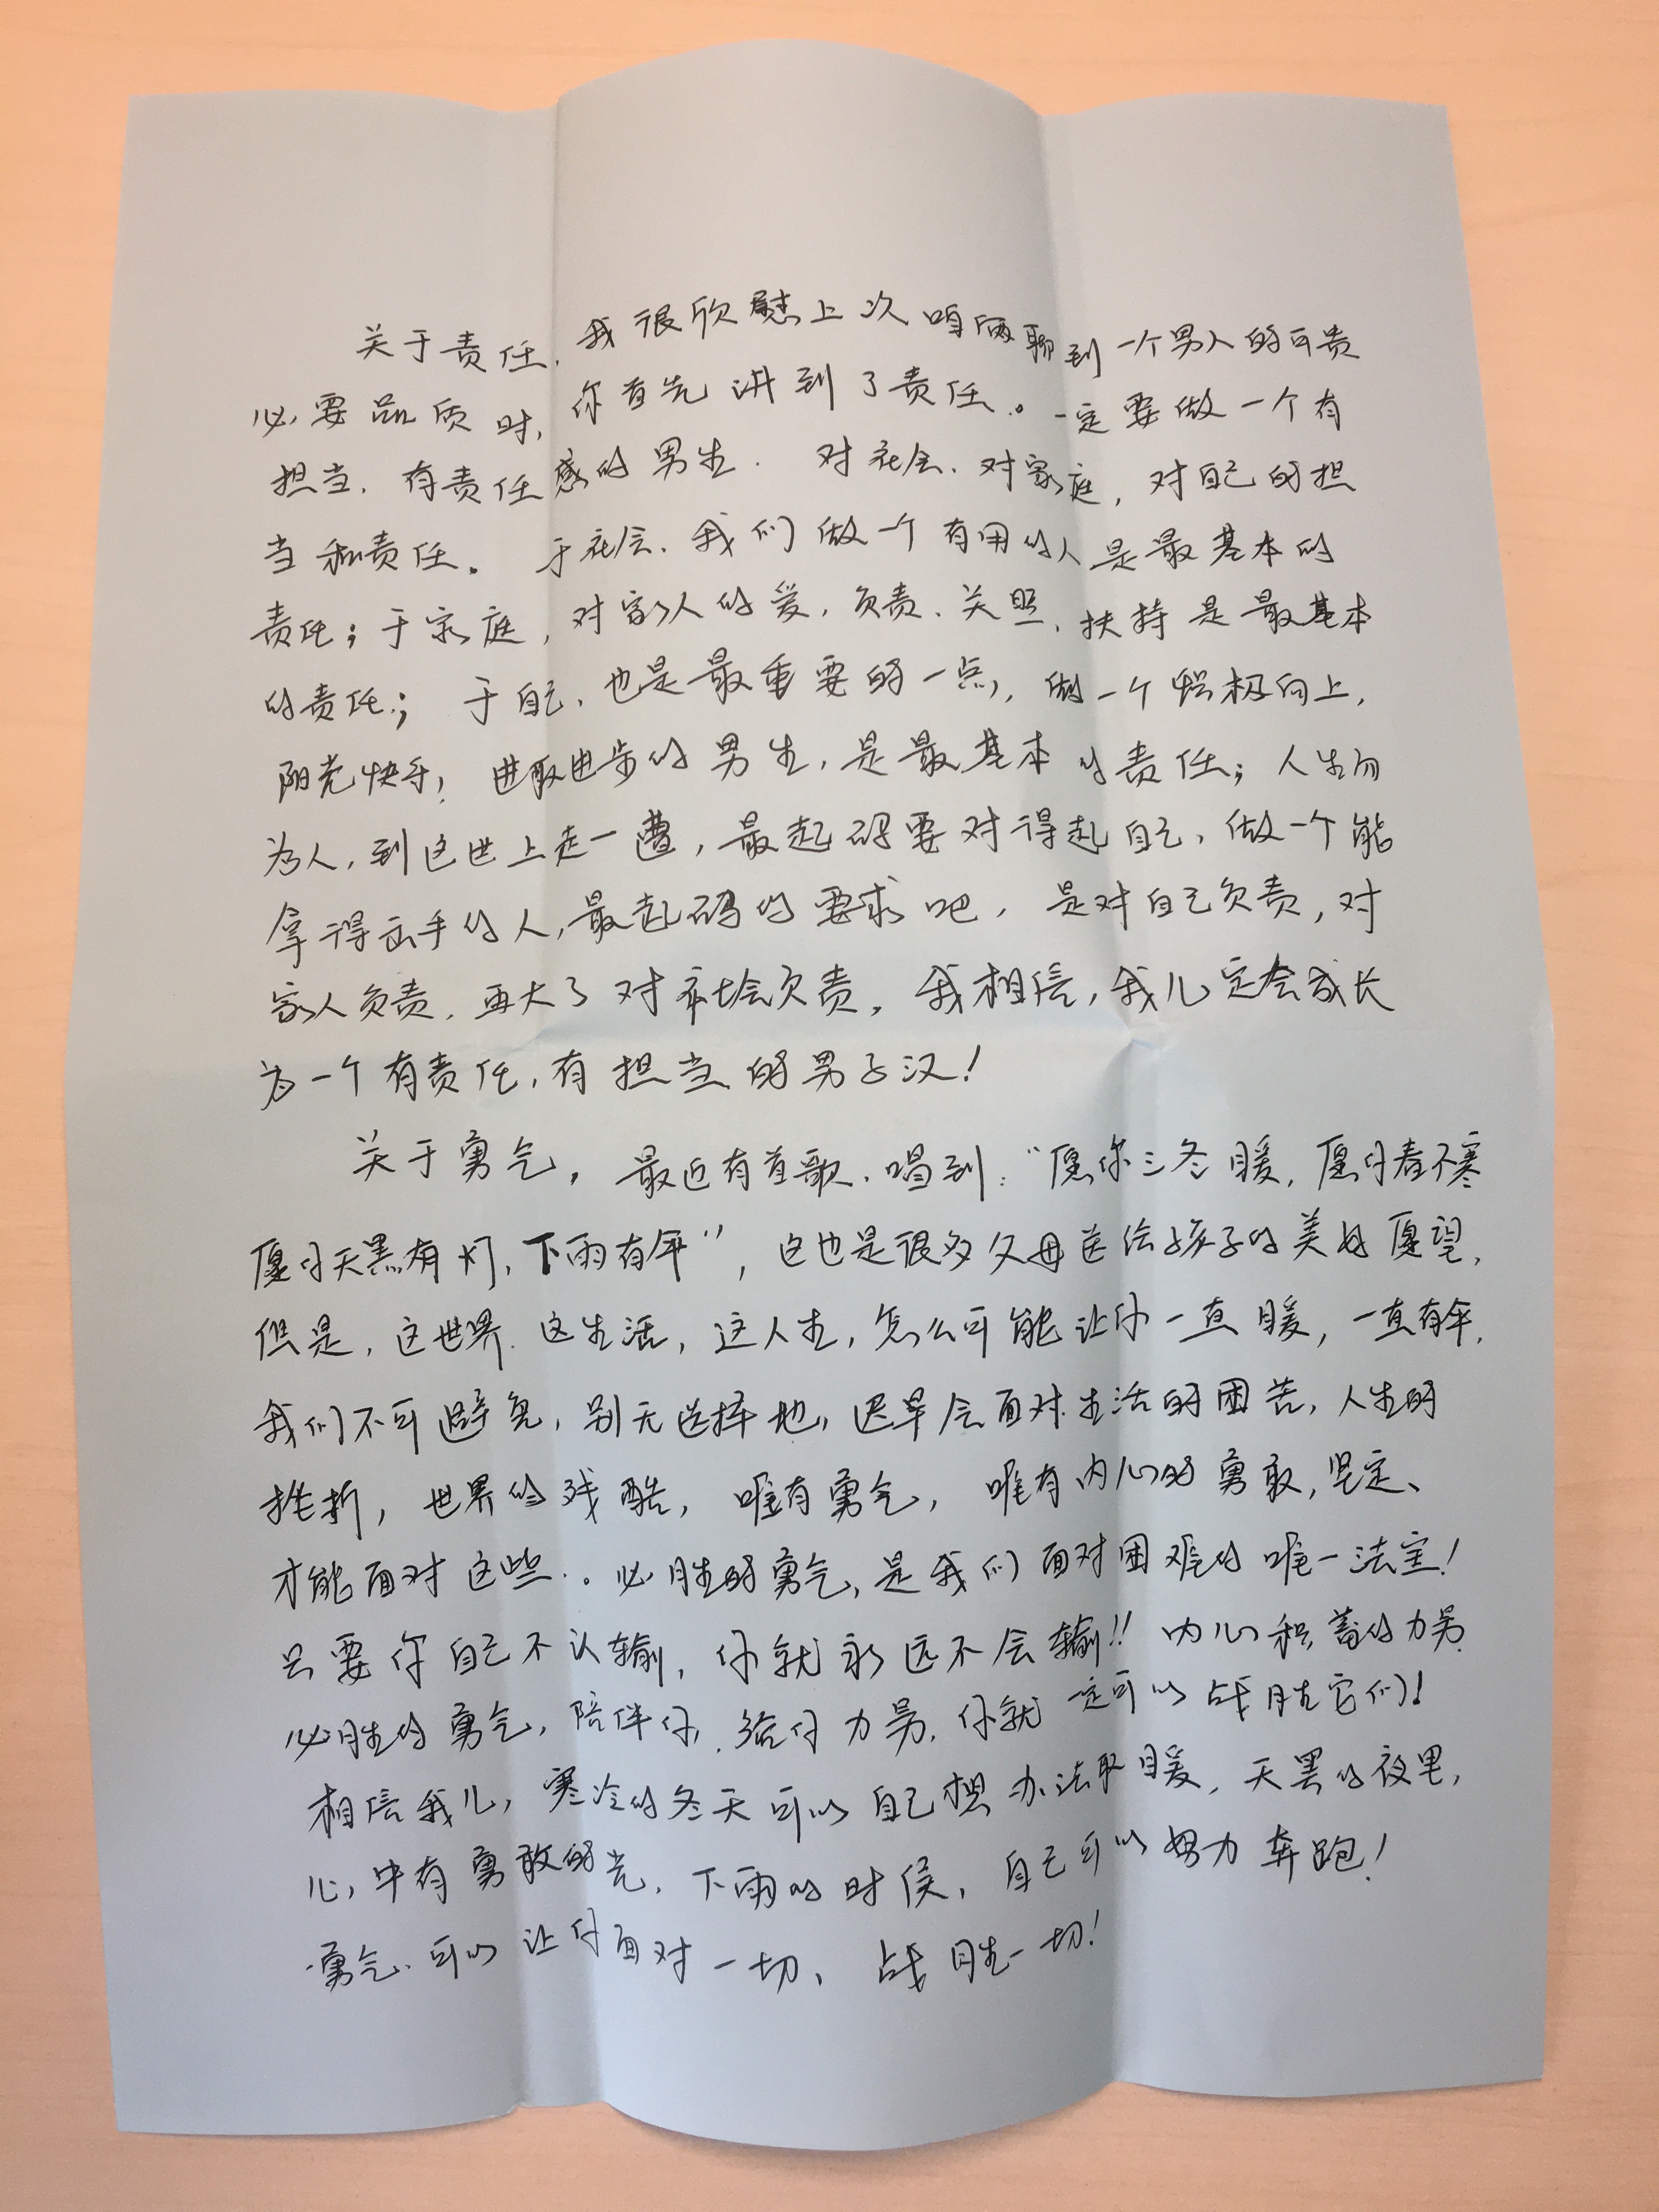 关于责任，我很欣慰上次咱俩聊到一个男人的可贵
必要品质时，你首先讲到了责任。一定要做一个有
担当、有责任感的男生．对社会、对家庭，对自己的担
当和责任。于社会、我们做一个有用的人是最基本的
责任；于家庭，对家人的爱，负责、关照、扶持是最基本
的责任；于自己、也是最重要的一点，做一个积极向上，
阳光快乐，进取进步的男生，是最基本的责任；人生而
为人，到这世上走一遭，最起码要对得起自己，做一个能
拿得出手的人，最起码的要求吧，是对自己负责，对
家人负责，再大了对社会负责。我相信，我儿定会成长
为一个有责任，有担当的男子汉！
关于勇气，最近有首歌，唱到：“愿你三冬暖，愿你春不寒
愿你天黑有灯，下雨有伞”，这也是很多父母送给孩子的美好愿望，
但是，这世界、这生活，这人生，怎么可能让你一直暖，一直有伞，
我们不可避免，别无选择地，迟早会面对生活的困苦，人生的
挫折，世界的残酷，唯有勇气，唯有内心的勇敢，坚定、
才能面对这些．。必胜的勇气，是我们面对困难的唯一法宝！
只要你自己不认输，你就永远不会输！！内心积蓄的力量
必胜的勇气，陪伴你，给你力量，你就一定可以战胜它们！
相信我儿，寒冷的冬天可以自己想办法取暖，天黑的夜里，
心中有勇敢的光，下雨的时候，自己可以努力奔跑！
勇气、可以让你面对一切、战胜一切！